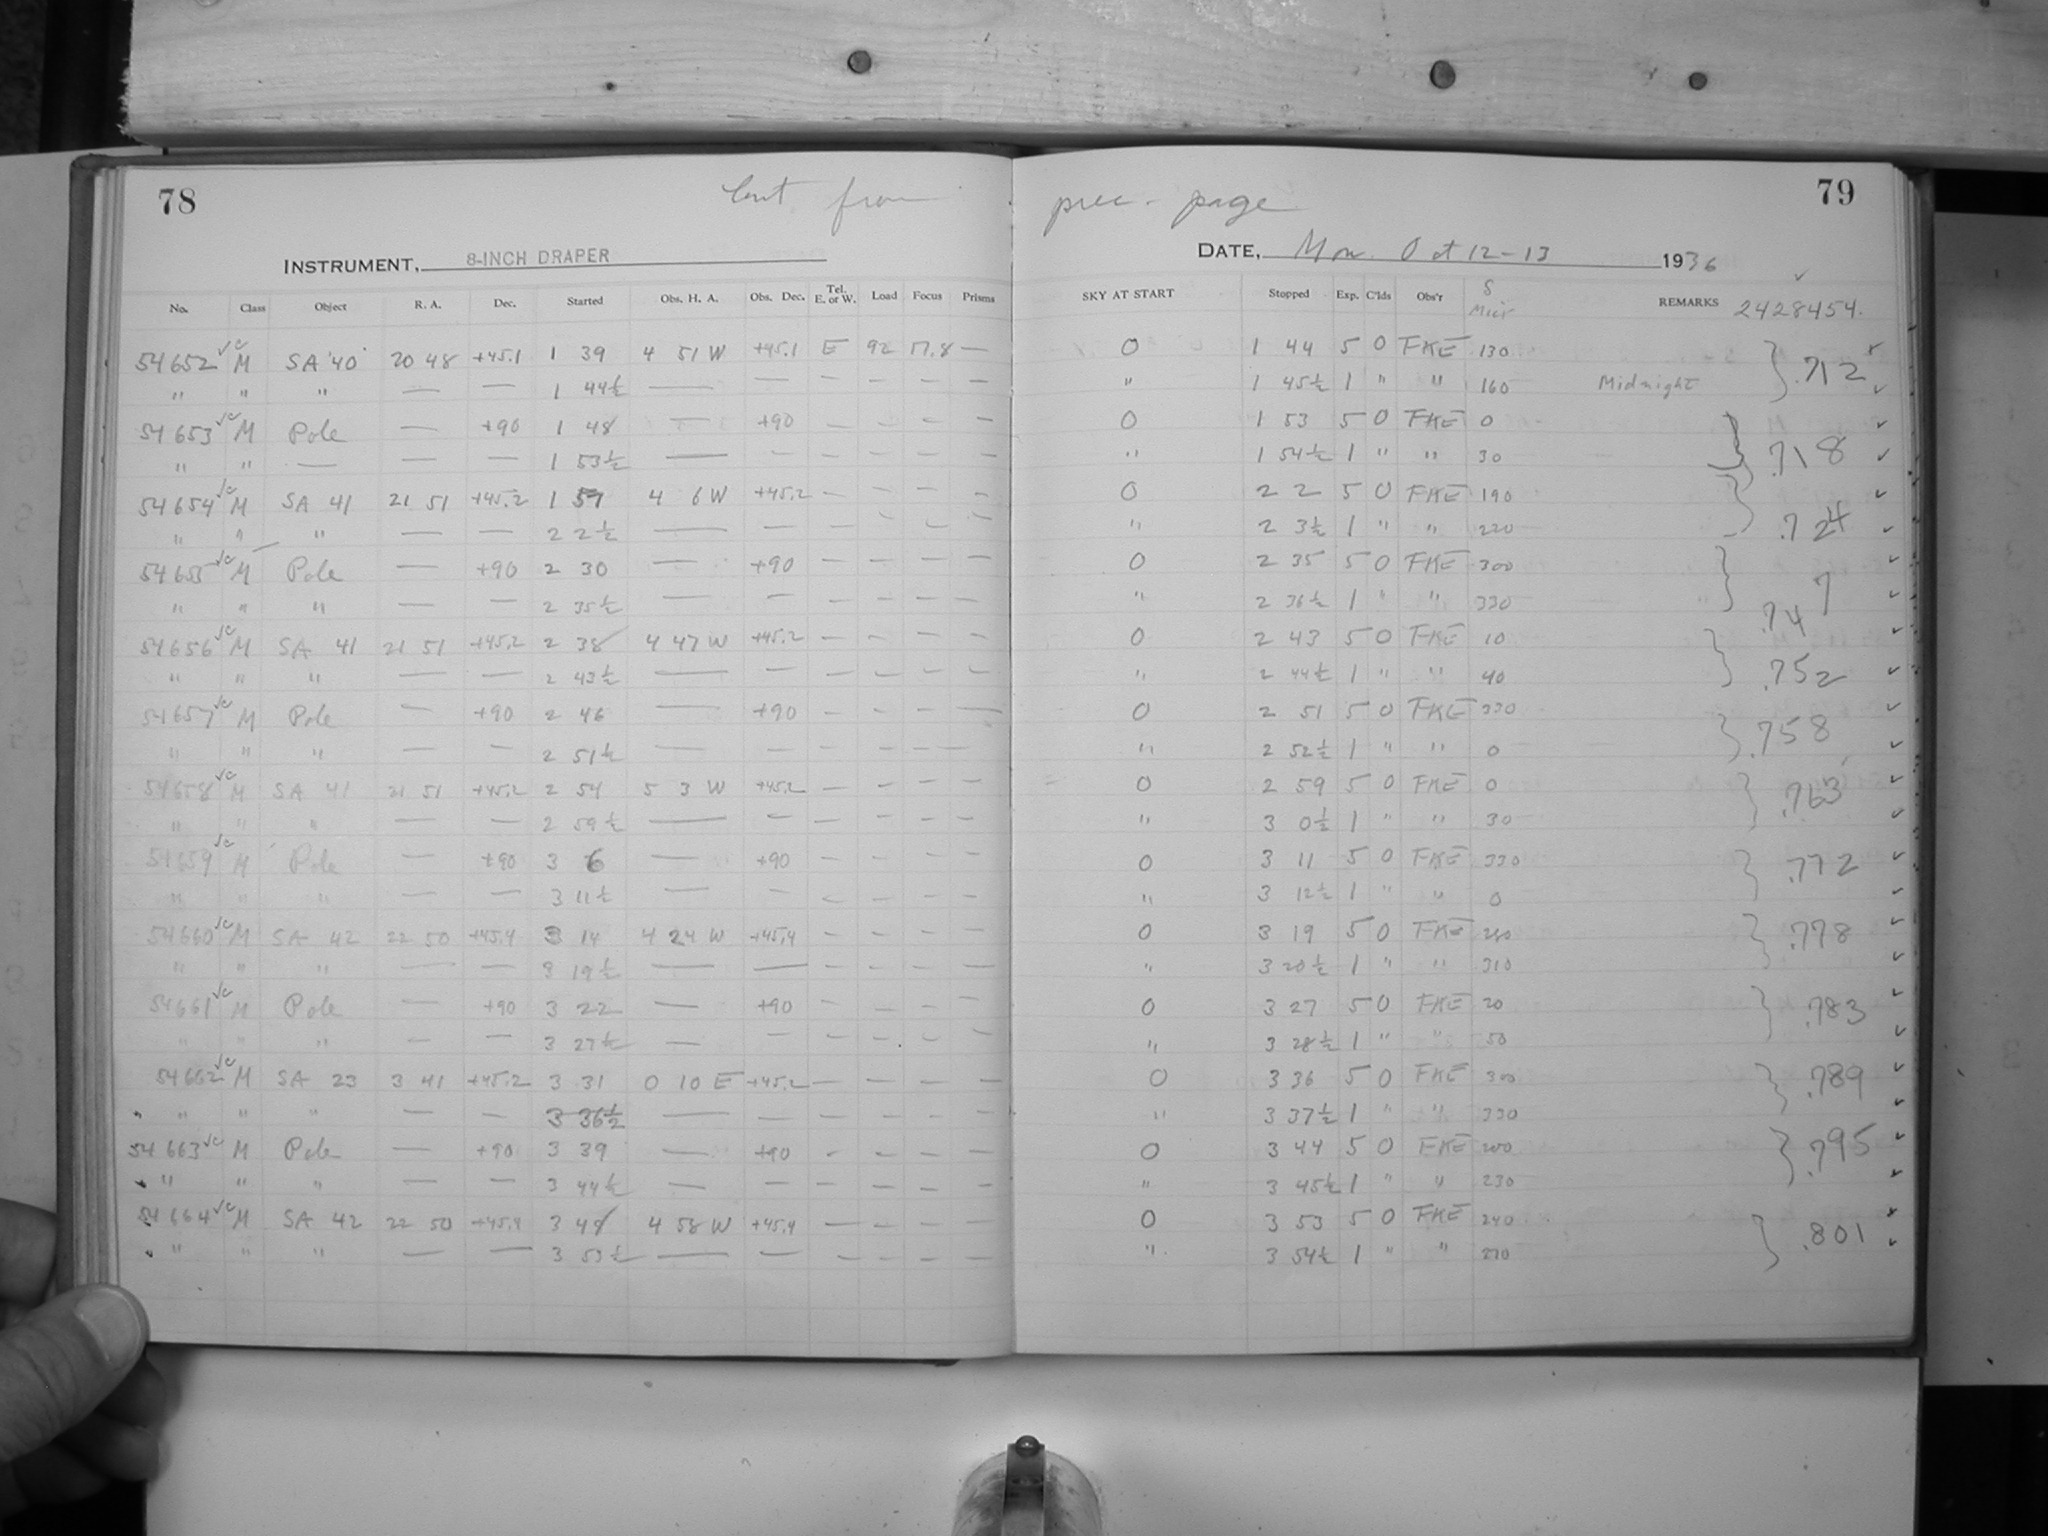 78
cont from
prec. page
79
INSTRUMENT, 8-INCH DRAPER
DATE, Mon. Oct 12-13 1936
No. Class Object R. A. Dec. Started Obs. H. A. Obs. Dec. Tel. E. or W. Load Focus Prisms SKY AT START Stopped Exp. C'lds Obs'r REMARKS 2428454.
54652 M SA 40 20 48 +45.1 1 39 4 51 W +45.1 E 92 17.8 — 0 1 44 5 0 FKE 130 } .712
" " " — — 1 44½ — — — — — — " 1 45½ 1 " " 160 Midnight
54653 M Pole — +90 1 48 — +90 — — — — 0 1 53 5 0 FKE 0 } .718
" " — — — 1 53½ — — — — — — " 1 54½ 1 " " 30
54654 M SA 41 21 51 +45.2 1 57 4 6 W +45.2 — — — — 0 2 2 5 0 FKE 190 } .724
" " " — — 2 2½ — — — — — — " 2 3½ 1 " " 220
54655 M Pole — +90 2 30 — +90 — — — — 0 2 35 5 0 FKE 300 } .747
" " " — — 2 35½ — — — — — — " 2 36½ 1 " " 330
54656 M SA 41 21 51 +45.2 2 38 4 47 W +45.2 — — — — 0 2 43 5 0 FKE 10 } .752
" " " — — 2 43½ — — — — — — " 2 44½ 1 " " 40
54657 M Pole — +90 2 46 — +90 — — — — 0 2 51 5 0 FKE 330 } .758
" " " — — 2 51½ — — — — — — " 2 52½ 1 " " 0
54658 M SA 41 21 51 +45.2 2 54 5 3 W +45.2 — — — — 0 2 59 5 0 FKE 0 } .763
" " " — — 2 59½ — — — — — — " 3 0½ 1 " " 30
54659 M Pole — +90 3 6 — +90 — — — — 0 3 11 5 0 FKE 330 } .772
" " " — — 3 11½ — — — — — — " 3 12½ 1 " " 0
54660 M SA 42 22 50 +45.4 3 14 4 24 W +45.4 — — — — 0 3 19 5 0 FKE 280 } .778
" " " — — 3 19½ — — — — — — " 3 20½ 1 " " 310
54661 M Pole — +90 3 22 — +90 — — — — 0 3 27 5 0 FKE 20 } .783
" " " — — 3 27½ — — — — — — " 3 28½ 1 " " 50
54662 M SA 23 3 41 +45.2 3 31 0 10 E +45.2 — — — — 0 3 36 5 0 FKE 300 } .789
" " " — — 3 36½ — — — — — — " 3 37½ 1 " " 330
54663 M Pole — +90 3 39 — +90 — — — — 0 3 44 5 0 FKE 200 } .795
" " " — — 3 44½ — — — — — — " 3 45½ 1 " " 230
54664 M SA 42 22 50 +45.4 3 48 4 58 W +45.4 — — — — 0 3 53 5 0 FKE 240 } .801
" " " — — 3 53½ — — — — — — " 3 54½ 1 " " 270